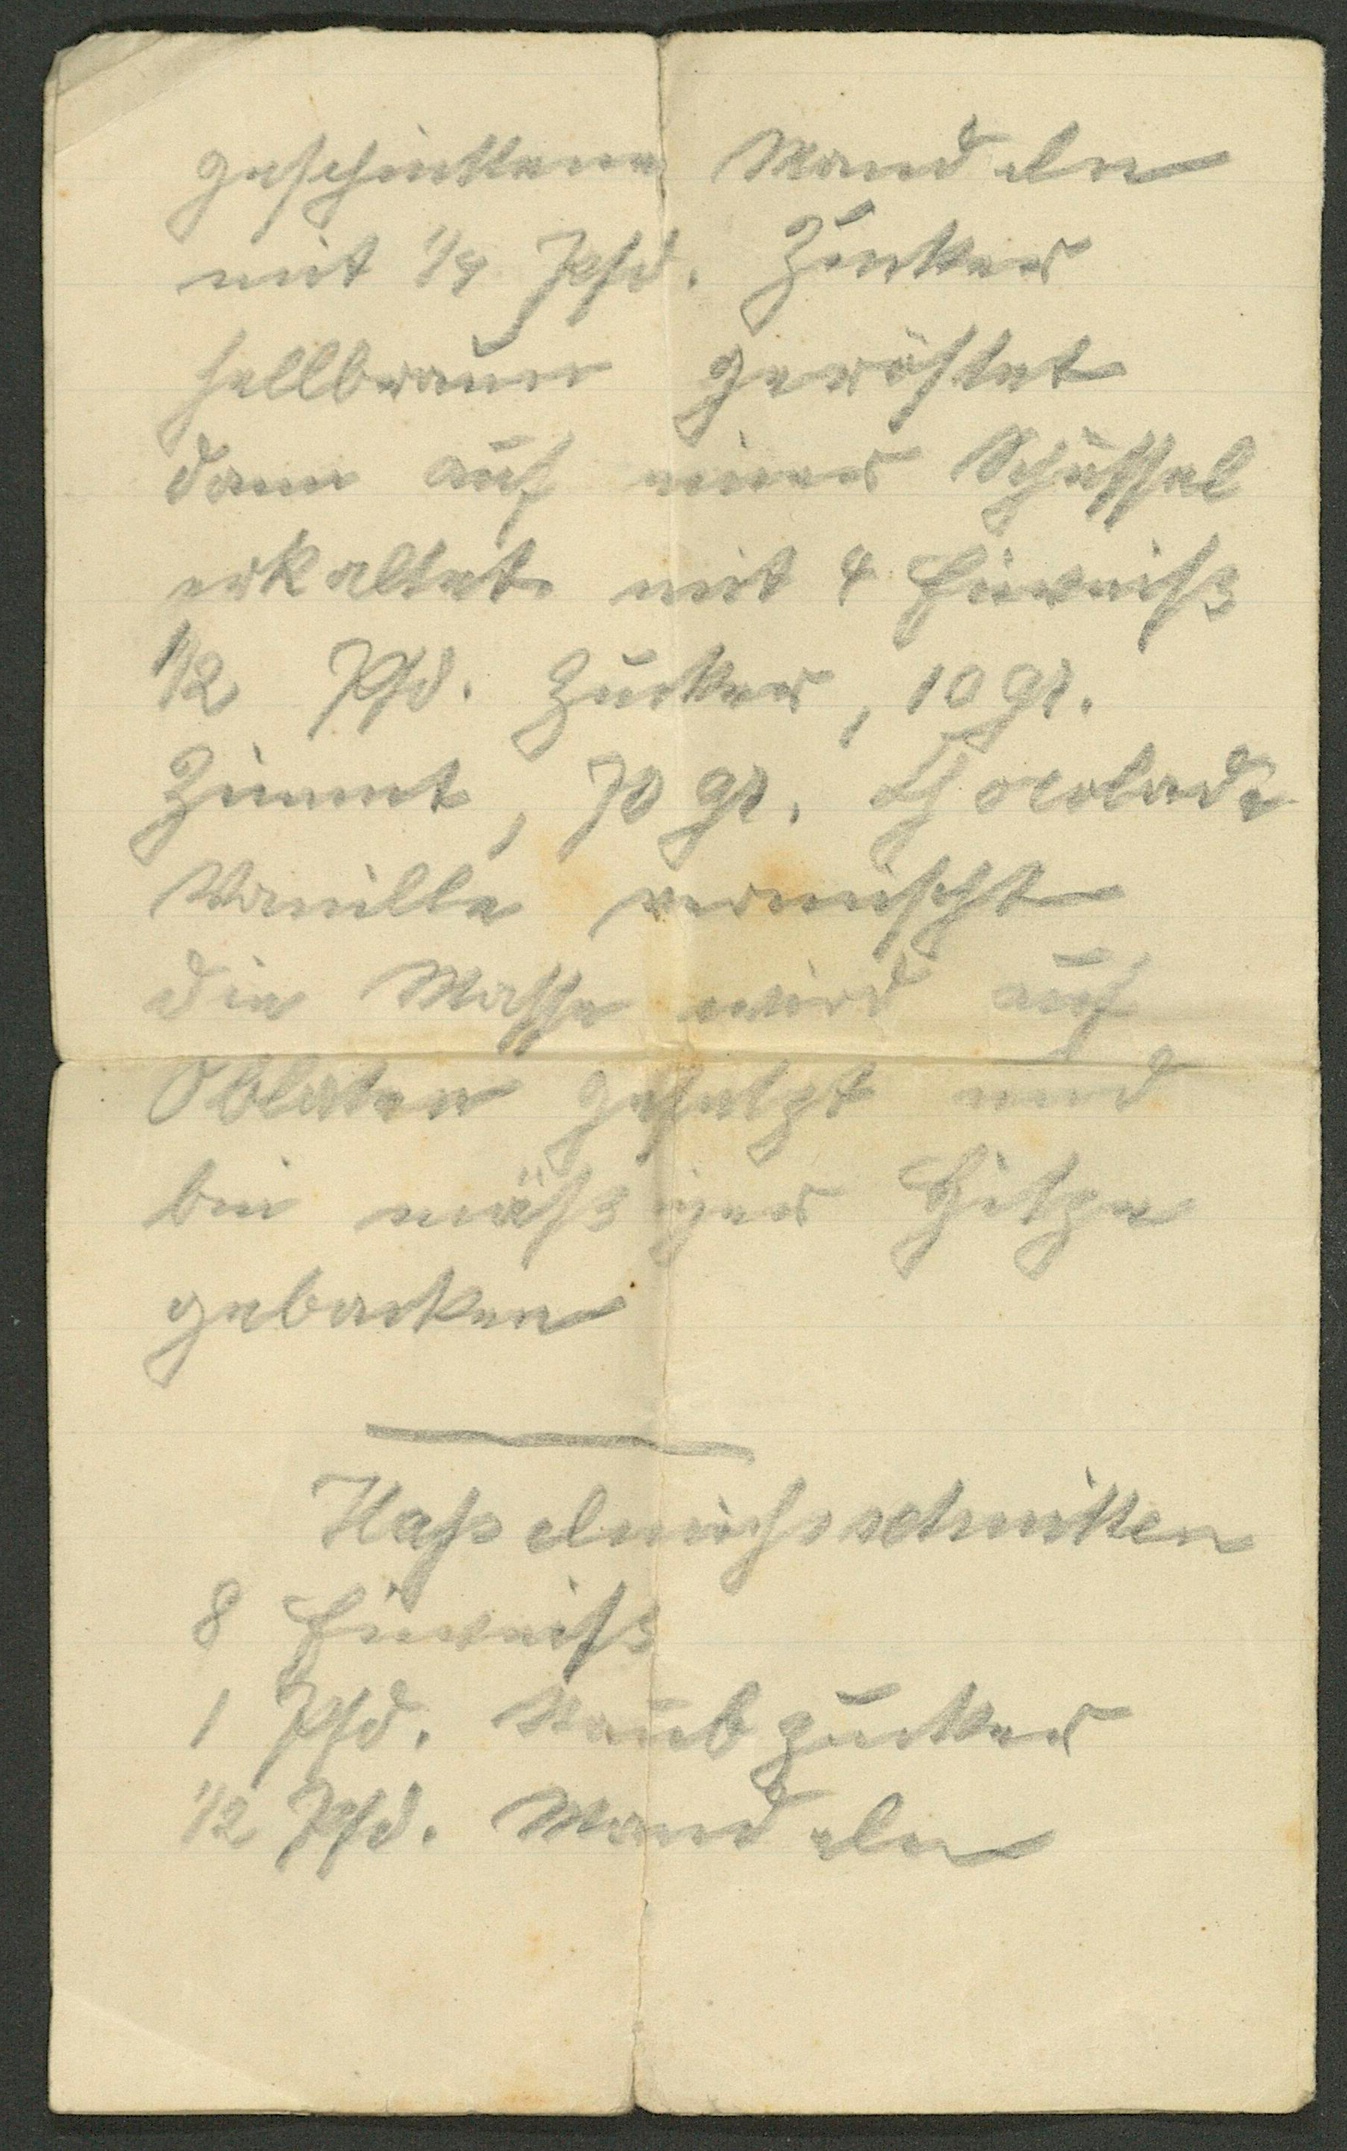 geschnittene Mandeln
mit 1/4 Pfd. Zucker
hellbraun geröstet
dann auf einer Schüssel
erkaltet mit 4 Eiweiß
1/2 Pfd. Zucker, 10 gr.
Zimmt, 70 gr. Chocolade
Vanille vermischt
die Masse wird auf
Oblaten gesetzt und
bei mäßiger Hitze
gebacken
Haßelnußschnitten
8 Eiweiß
1 Pfd. Staubzucker
1/2 Pfd. Mandeln